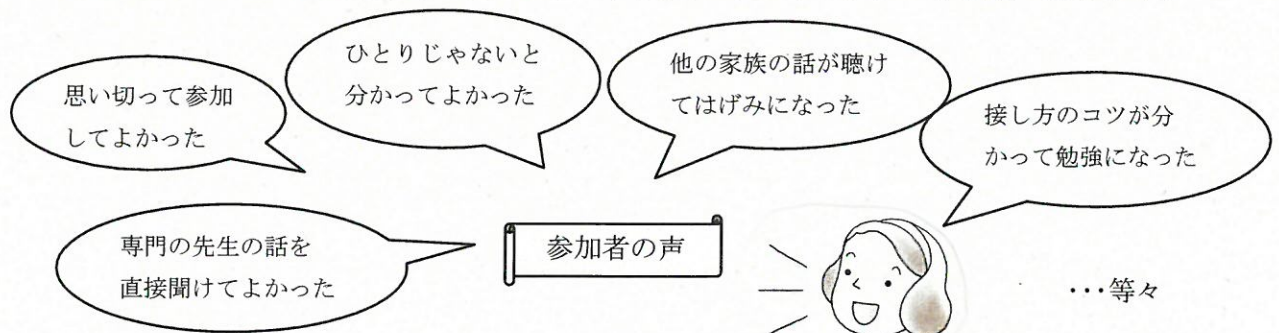 思い切って参加
してよかった
ひとりじゃないと
分かってよかった
他の家族の話が聴け
てはげみになった
接し方のコツが分
かって勉強になった
専門の先生の話を
直接聞けてよかった
参加者の声
・・・等々